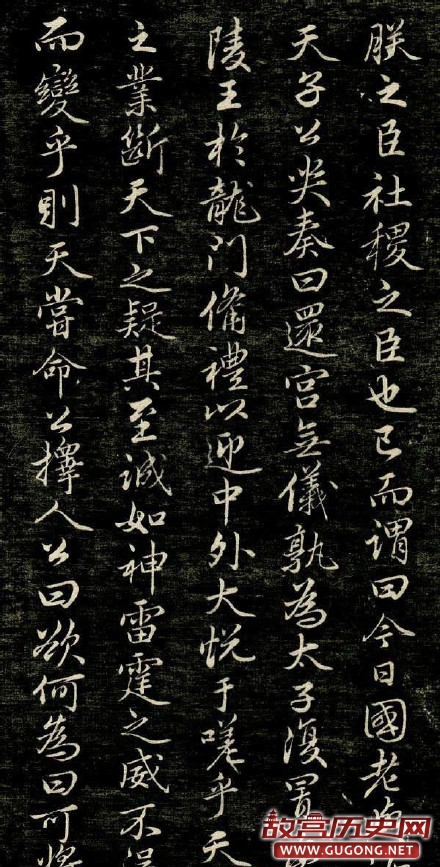 朕之臣社稷之臣也已而謂曰今日國老
天子公哭奏曰還宮無儀孰為太子復置
陵王於龍門備禮以迎中外大悅于嗟乎天
之業斷天下之疑其至誠如神雷霆之威不
而變乎則天嘗命公擇人公曰欲何為曰可將
故宫历史网
WWW.GUGONG.NET